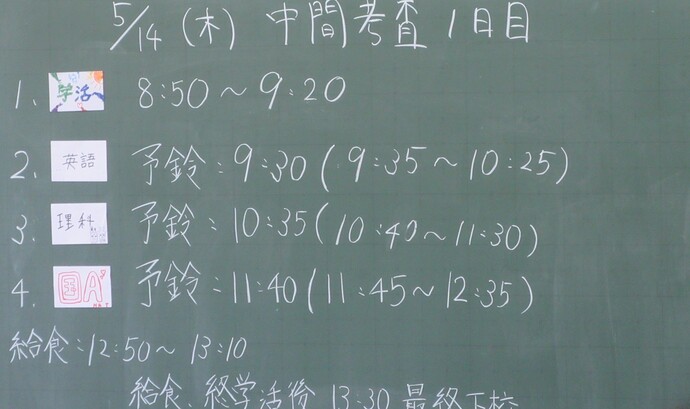 5/14 (木) 中間考査 1日目
1. 学活 8:50～9:20
2. 英語 予鈴:9:30(9:35～10:25)
3. 理科 予鈴:10:35(10:40～11:30)
4. 国A 予鈴:11:40(11:45～12:35)
給食:12:50～13:10
給食、終学活後 13:30 最終下校